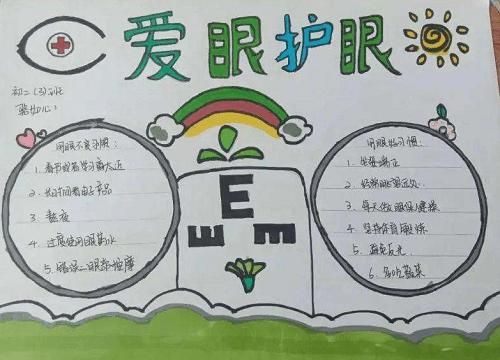 爱眼护眼
初二(3)班
用眼不良习惯:
1. 看书或者学习离太近
2. 长时间看电子产品
3. 熬夜
4. 过度使用眼药水
5. 错误眼部按摩
E
E
E
用眼好习惯:
1. 坐姿端正
2. 经常闭眼望远处
3. 每天做眼保健操
4. 坚持体育锻炼
5. 避免反光
6. 多吃蔬菜